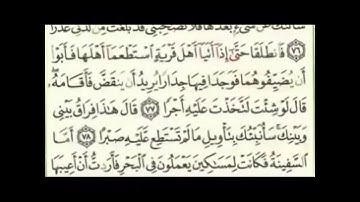 سَأَلْتُكَ عَن شَىْءٍۭ بَعْدَهَا فَلَا تُصَٰحِبْنِى قَدْ بَلَغْتَ مِن لَّدُنِّى عُذْرًا
٧٦ فَٱنطَلَقَا حَتَّىٰٓ إِذَآ أَتَيَآ أَهْلَ قَرْيَةٍ ٱسْتَطْعَمَآ أَهْلَهَا فَأَبَوْا۟
أَن يُضَيِّفُوهُمَا فَوَجَدَا فِيهَا جِدَارًا يُرِيدُ أَن يَنقَضَّ فَأَقَامَهُۥ ۖ
قَالَ لَوْ شِئْتَ لَتَّخَذْتَ عَلَيْهِ أَجْرًا ٧٧ قَالَ هَٰذَا فِرَاقُ بَيْنِى
وَبَيْنِكَ ۚ سَأُنَبِّئُكَ بِتَأْوِيلِ مَا لَمْ تَسْتَطِع عَّلَيْهِ صَبْرًا ٧٨ أَمَّا
ٱلسَّفِينَةُ فَكَانَتْ لِمَسَٰكِينَ يَعْمَلُونَ فِى ٱلْبَحْرِ فَأَرَدتُّ أَنْ أَعِيبَهَا